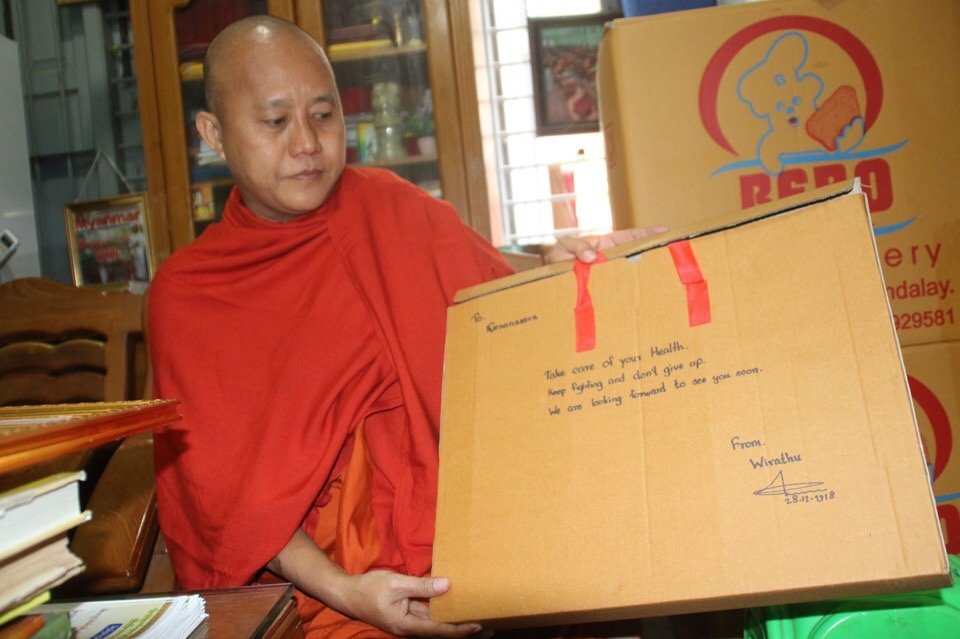 Myanmar
BERO
ery
ndalay.
929581
To.
Take care of your Health.
Keep fighting and don't give up.
We are looking forward to see you soon.
From.
Wirathu
28.12.2018